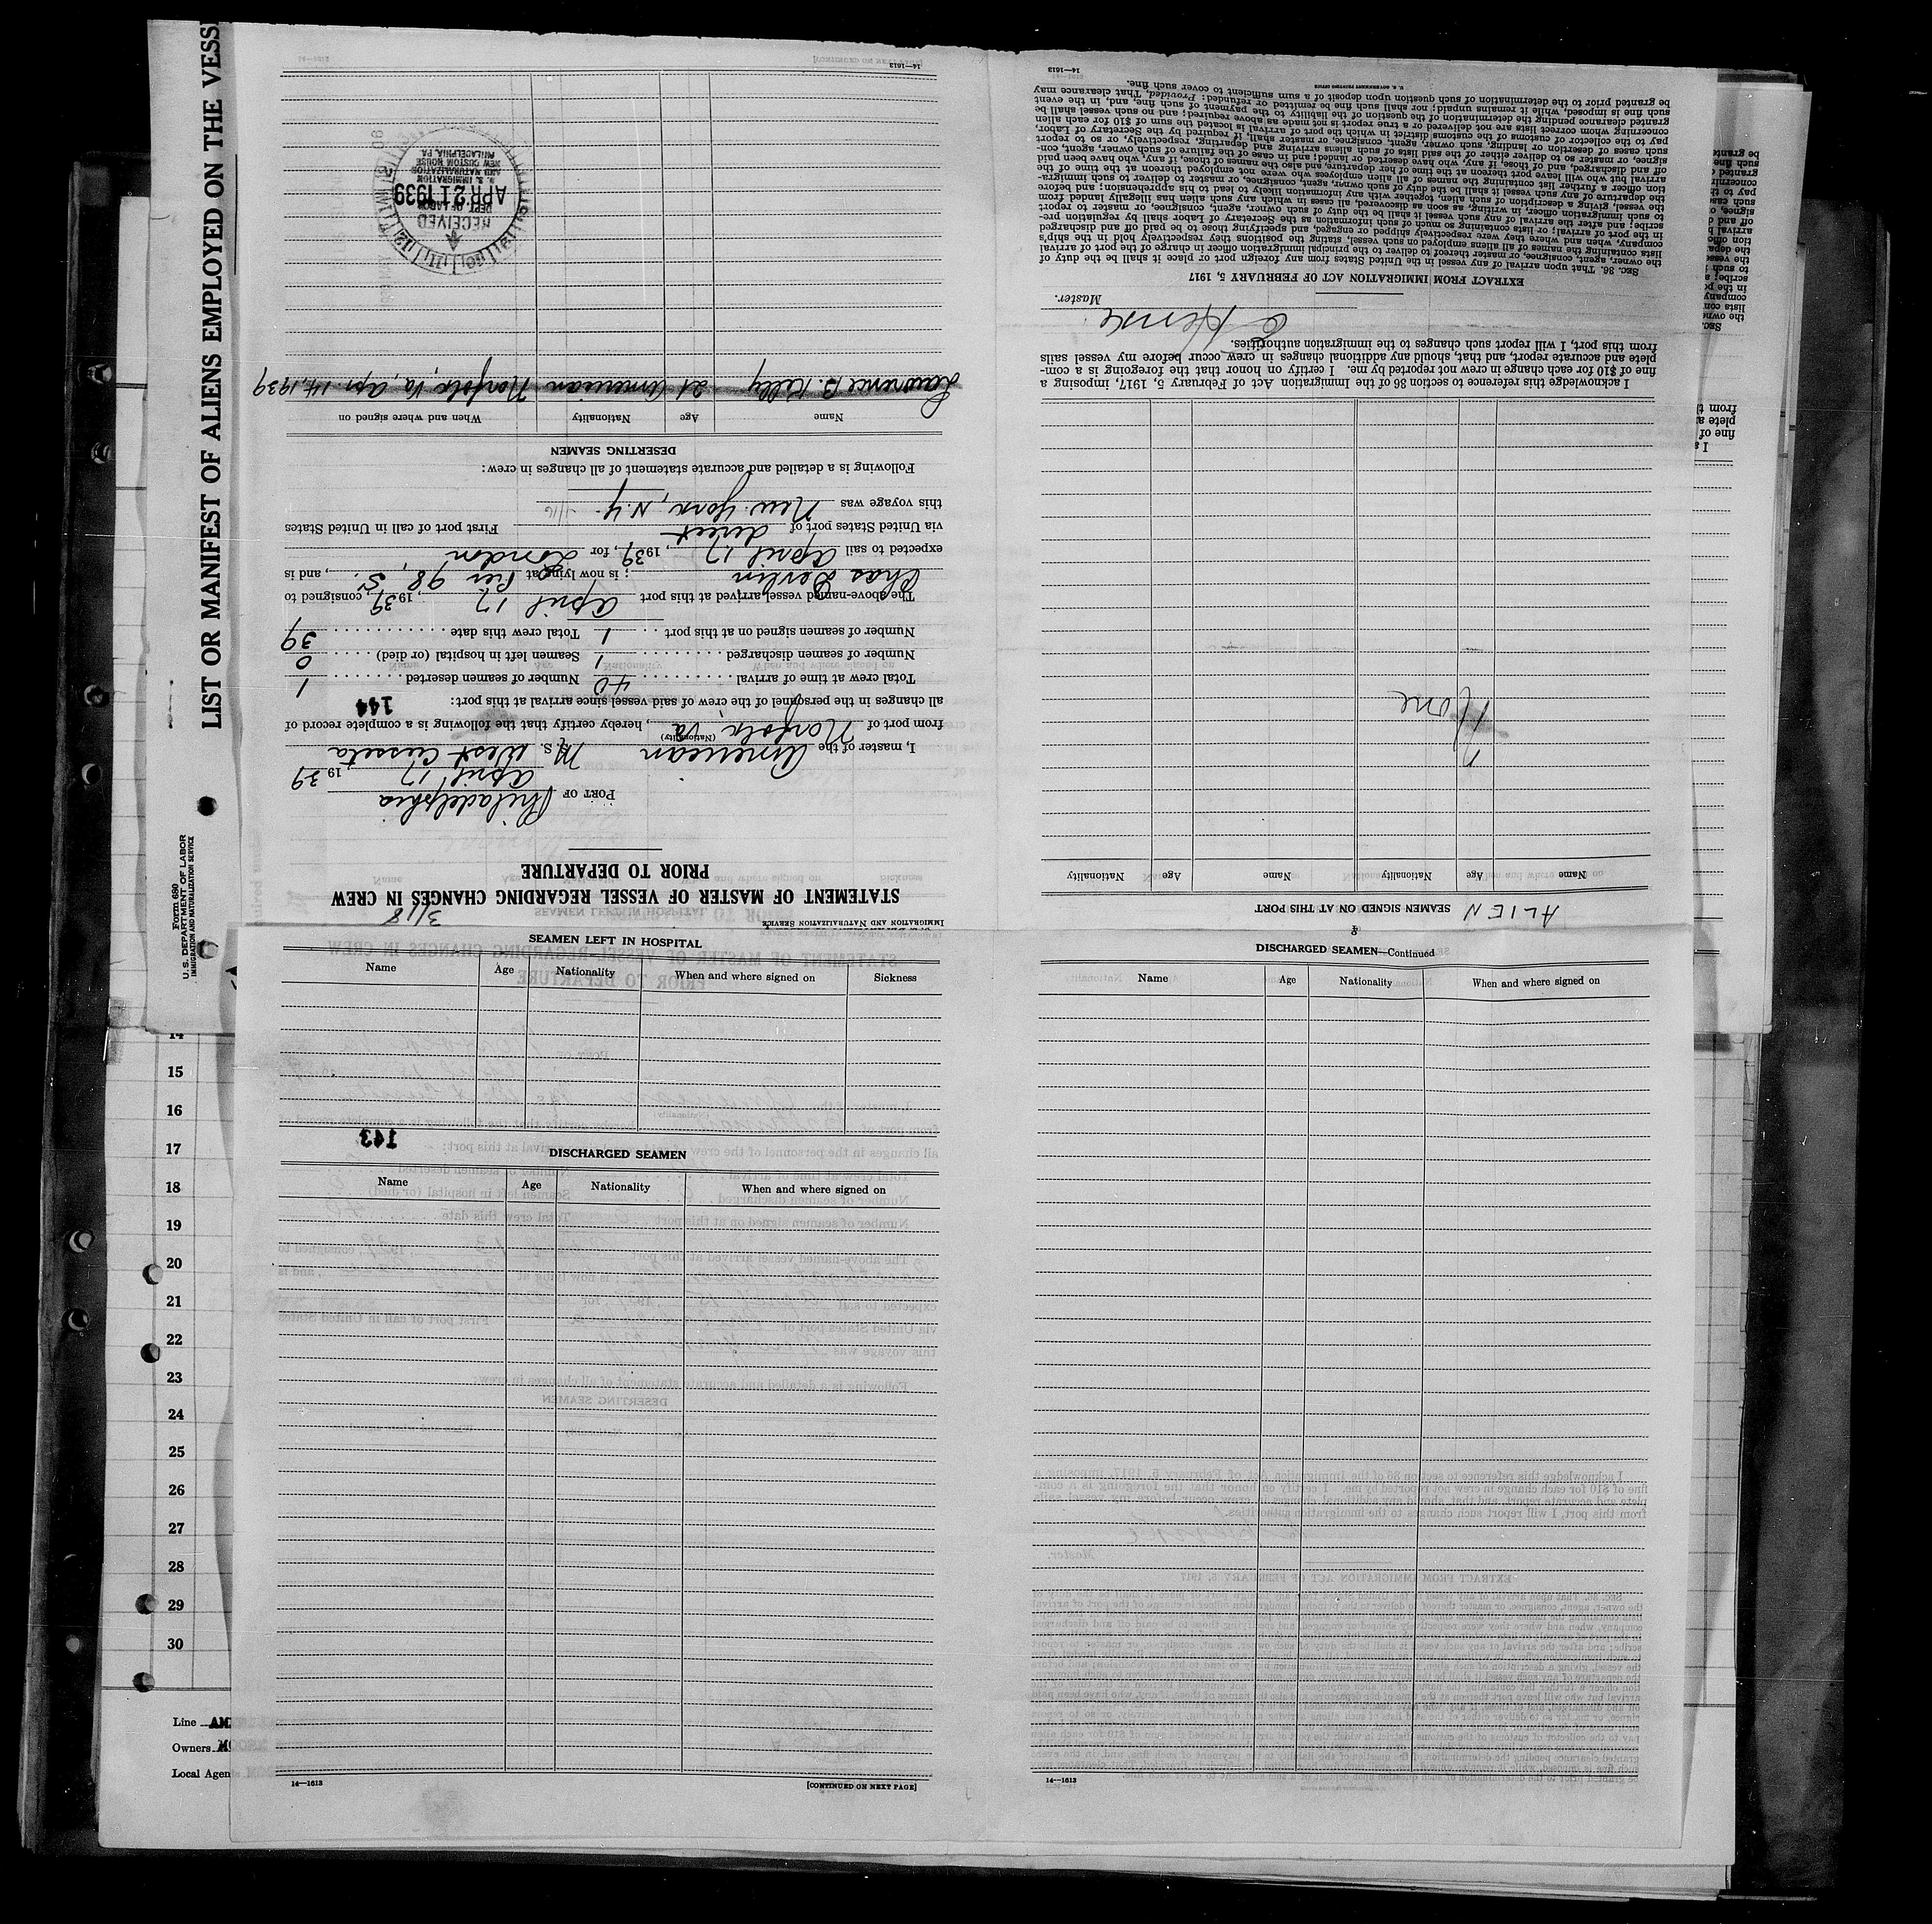 LIST OR MANIFEST OF ALIENS EMPLOYED ON THE VESS
Form 680
U. S. DEPARTMENT OF LABOR
IMMIGRATION AND NATURALIZATION SERVICE
3/18
IMMIGRATION AND NATURALIZATION SERVICE
STATEMENT OF MASTER OF VESSEL REGARDING CHANGES IN CREW
PRIOR TO DEPARTURE
PORT OF Philadelphia
April 17, 1939
I, master of the American M. S. West Cusseta
(Nationality)
from port of Norfolk, Va, hereby certify that the following is a complete record of
all changes in the personnel of the crew of said vessel since arrival at this port:
144
Total crew at time of arrival 40 Number of seamen deserted 1
Number of seamen discharged 1 Seamen left in hospital (or died) 0
Number of seamen signed on at this port 1 Total crew this date 39
The above-named vessel arrived at this port April 17 1939, consigned to
Chas Devlin; is now lying at Pier 98, S., and is
expected to sail April 17, 1939, for London
via United States port of direct First port of call in United States
this voyage was New York, N.Y.
Following is a detailed and accurate statement of all changes in crew:
DESERTING SEAMEN
Name Age Nationality When and where signed on
Lawrence B. Kelly 21 American Norfolk, Va, Apr. 14, 1939
RECEIVED
DEPT OF LABOR
APR 21 1939
U. S. IMMIGRATION
AND NATURALIZATION
NEW CUSTOM HOUSE
PHILADELPHIA, PA
14—1613
ALIEN SEAMEN SIGNED ON AT THIS PORT
Name Age Nationality Name Age Nationality
None
I acknowledge this reference to section 36 of the Immigration Act of February 5, 1917, imposing a
fine of $10 for each change in crew not reported by me. I certify on honor that the foregoing is a com-
plete and accurate report, and that, should any additional changes in crew occur before my vessel sails
from this port, I will report such changes to the immigration authorities.
Master.
EXTRACT FROM IMMIGRATION ACT OF FEBRUARY 5, 1917
SEC. 36. That upon arrival of any vessel in the United States from any foreign port or place it shall be the duty of
the owner, agent, consignee, or master thereof to deliver to the principal immigration officer in charge of the port of arrival
lists containing the names of all aliens employed on such vessel, stating the positions they respectively hold in the ship's
company, when and where they were respectively shipped or engaged, and specifying those to be paid off and discharged
in the port of arrival; or lists containing so much of such information as the Secretary of Labor shall by regulation pre-
scribe; and after the arrival of any such vessel it shall be the duty of such owner, agent, consignee, or master to report
to such immigration officer, in writing, as soon as discovered, all cases in which any such alien has illegally landed from
the vessel, giving a description of such alien, together with any information likely to lead to his apprehension; and before
the departure of any such vessel it shall be the duty of such owner, agent, consignee, or master to deliver to such immigra-
tion officer a further list containing the names of all alien employees who were not employed thereon at the time of the
arrival but who will leave port thereon at the time of her departure, and also the names of those, if any, who have been paid
off and discharged, and of those, if any, who have deserted or landed; and in case of the failure of such owner, agent, con-
signee, or master so to deliver either of the said lists of such aliens arriving and departing, respectively, or so to report
such cases of desertion or landing, such owner, agent, consignee, or master shall, if required by the Secretary of Labor,
pay to the collector of customs of the customs district in which the port of arrival is located the sum of $10 for each alien
concerning whom correct lists are not delivered or a true report is not made as above required; and no such vessel shall be
granted clearance pending the determination of the question of the liability to the payment of such fine, and, in the event
such fine is imposed, while it remains unpaid; nor shall such fine be remitted or refunded: Provided, That clearance may
be granted prior to the determination of such question upon deposit of a sum sufficient to cover such fine.
U. S. GOVERNMENT PRINTING OFFICE
14—1613
SEAMEN LEFT IN HOSPITAL
Name Age Nationality When and where signed on Sickness
143
DISCHARGED SEAMEN
Name Age Nationality When and where signed on
14—1613 [CONTINUED ON NEXT PAGE]
DISCHARGED SEAMEN—Continued
Name Age Nationality When and where signed on
14—1613
14
15
16
17
18
19
20
21
22
23
24
25
26
27
28
29
30
Line
Owners
Local Agen